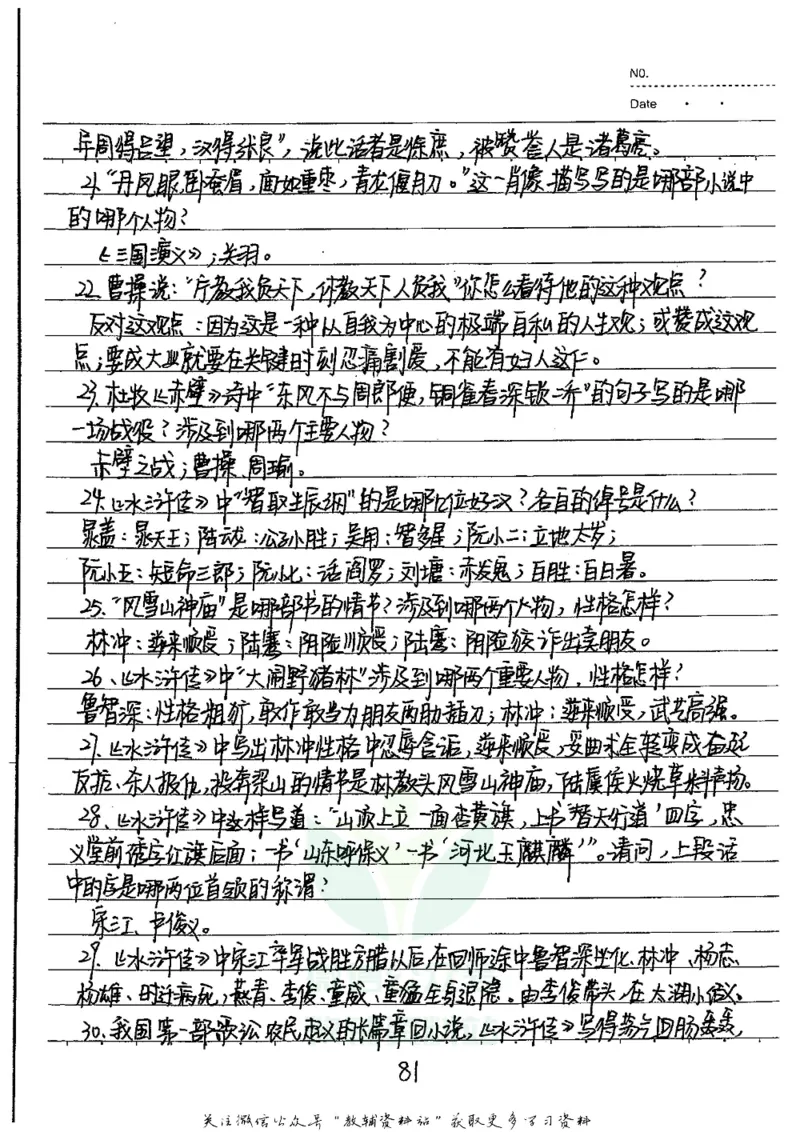 NO.
Date
年周得吕望，汉得张良”，说此话者是徐庶，被赞誉人是诸葛亮。
21、“丹凤眼，卧蚕眉，面如重枣，青龙偃月刀。”这一肖像描写写的是哪部小说中
的哪个人物？
《三国演义》；关羽。
22、曹操说：“宁教我负天下人，休教天下人负我”你怎么看待他的这种观点？
反对这观点：因为这是一种以自我为中心的极端自私的人生观；或赞成这观
点；要成大业就要在关键时刻忍痛割爱，不能有妇人之仁。
23、杜牧《赤壁》诗中“东风不与周郎便，铜雀春深锁二乔”的句子写的是哪
一场战役？涉及到哪两个主要人物？
赤壁之战；曹操、周瑜。
24、《水浒传》中“智取生辰纲”的是哪几位好汉？各自的绰号是什么？
晁盖：晁天王；公孙胜；吴用：智多星；阮小二：立地太岁；
阮小五：短命二郎；阮小七：活阎罗；刘唐：赤发鬼；白胜：白日鼠。
25、“风雪山神庙”是哪部书的情节？涉及到哪两个人物，性格怎样？
林冲：逆来顺受；陆谦：阴险顺受；陆谦：阴险狡诈出卖朋友。
26、《水浒传》中“大闹野猪林”涉及到哪两个重要人物，性格怎样？
鲁智深：性格粗犷，敢作敢当为朋友两肋插刀；林冲：逆来顺受，武艺高强。
27、《水浒传》中写出林冲性格中忍辱含诟，逆来顺受，委曲求全转变成奋起
反抗、杀人报仇，投奔梁山的情节是林教头风雪山神庙，陆虞侯火烧草料场。
28、《水浒传》中这样写道：“山顶上立一面杏黄旗，上书‘替天行道’四字，忠
义堂前绣字红旗后面：一书‘山东呼保义’一书‘河北玉麒麟’”。请问，上段话
中的字是哪两位首领的称谓？
宋江、卢俊义。
29、《水浒传》中宋江率军战胜方腊以后，在回师途中鲁智深坐化、林冲、杨志、
杨雄、时迁病死，燕青、李俊、童威、童猛全身退隐。由李俊带头，在太湖小结义。
30、我国第一部歌讼农民起义的长篇章回小说，《水浒传》写得荡气回肠轰轰，
81
关注微信公众号“教辅资料站”获取更多学习资料